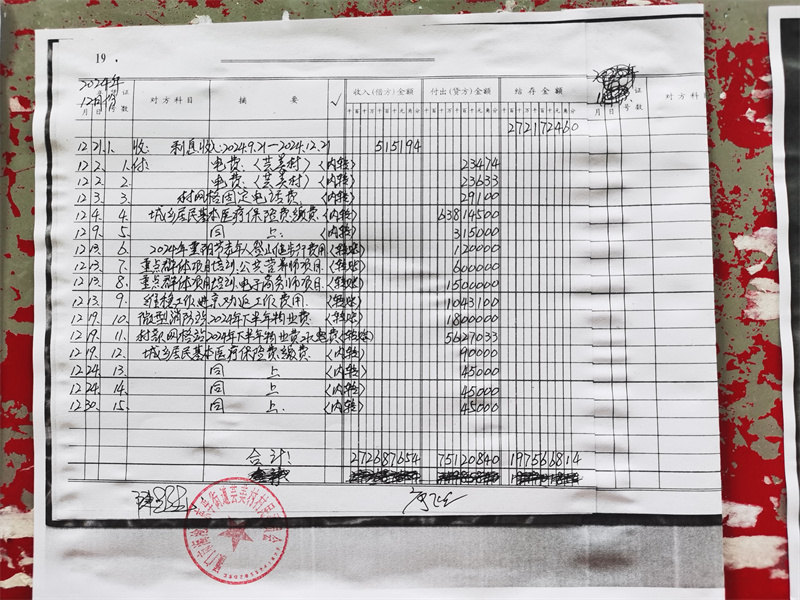 19 .
2024年
12月份
证
号数
对方科目
摘 要
√
收入(借方)金额
付出(贷方)金额
结存金额
千百十万千百十元角分
千百十万千百十元角分
千百十万千百十元角分
月 日
证
号数
对方科
272172460
12 21. 1. 收: 利息收入:2024.9.21—2024.12.21 515194
12 2. 1. 付: 电费:(芸美村)〈内转〉 23474
12 2. 2 电费:(芸美村)〈内转〉 23633
12 3. 3. 村网格固定电话费.〈内转〉 29100
12 4. 4. 城乡居民基本医疗保险费缴费.〈内转〉 63814500
12 9. 5. 同 上.〈内转〉 315000
12 13. 6. 2024年重阳节老人登山健步行费用〈转账〉 120000
12 13. 7. 重点群体项目培训.公共营养师项目.〈转账〉 600000
12 13. 8. 重点群体项目培训.电子商务师项目.〈转账〉 1500000
12 13. 9. 维稳工作进京劝返工作费用.〈转账〉 1043100
12 19. 10. 微型消防站2024年下半年物业费.〈转账〉 1800000
12 19. 11. 村部.网格站2024年下半年物业费.水电费〈转账〉 5627033
12 19. 12. 城乡居民基本医疗保险费.缴费.〈内转〉 90000
12 24. 13. 同 上.〈内转〉 45000
12 24. 14. 同 上.〈内转〉 45000
12 30. 15. 同 上.〈内转〉 45000
合计: 272687654 75120840 197566814